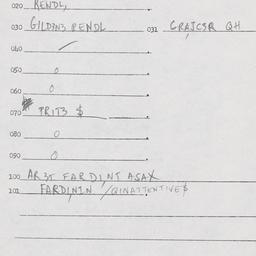 020 RENDL,
030 GILDINS RENDL 031 GRAJCSR QH
040
050 0
060 0
070 PRIT3 $
080 0
090 0
100 AR3T FARDINT ASAX
101 FARDININ /QINATTENTIVE$